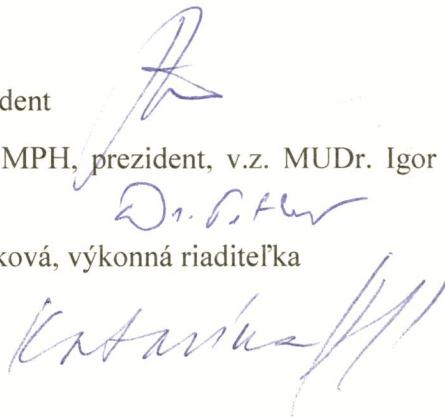 dent
MPH, prezident, v.z. MUDr. Igor
Dr.
ková, výkonná riaditeľka
Katarína